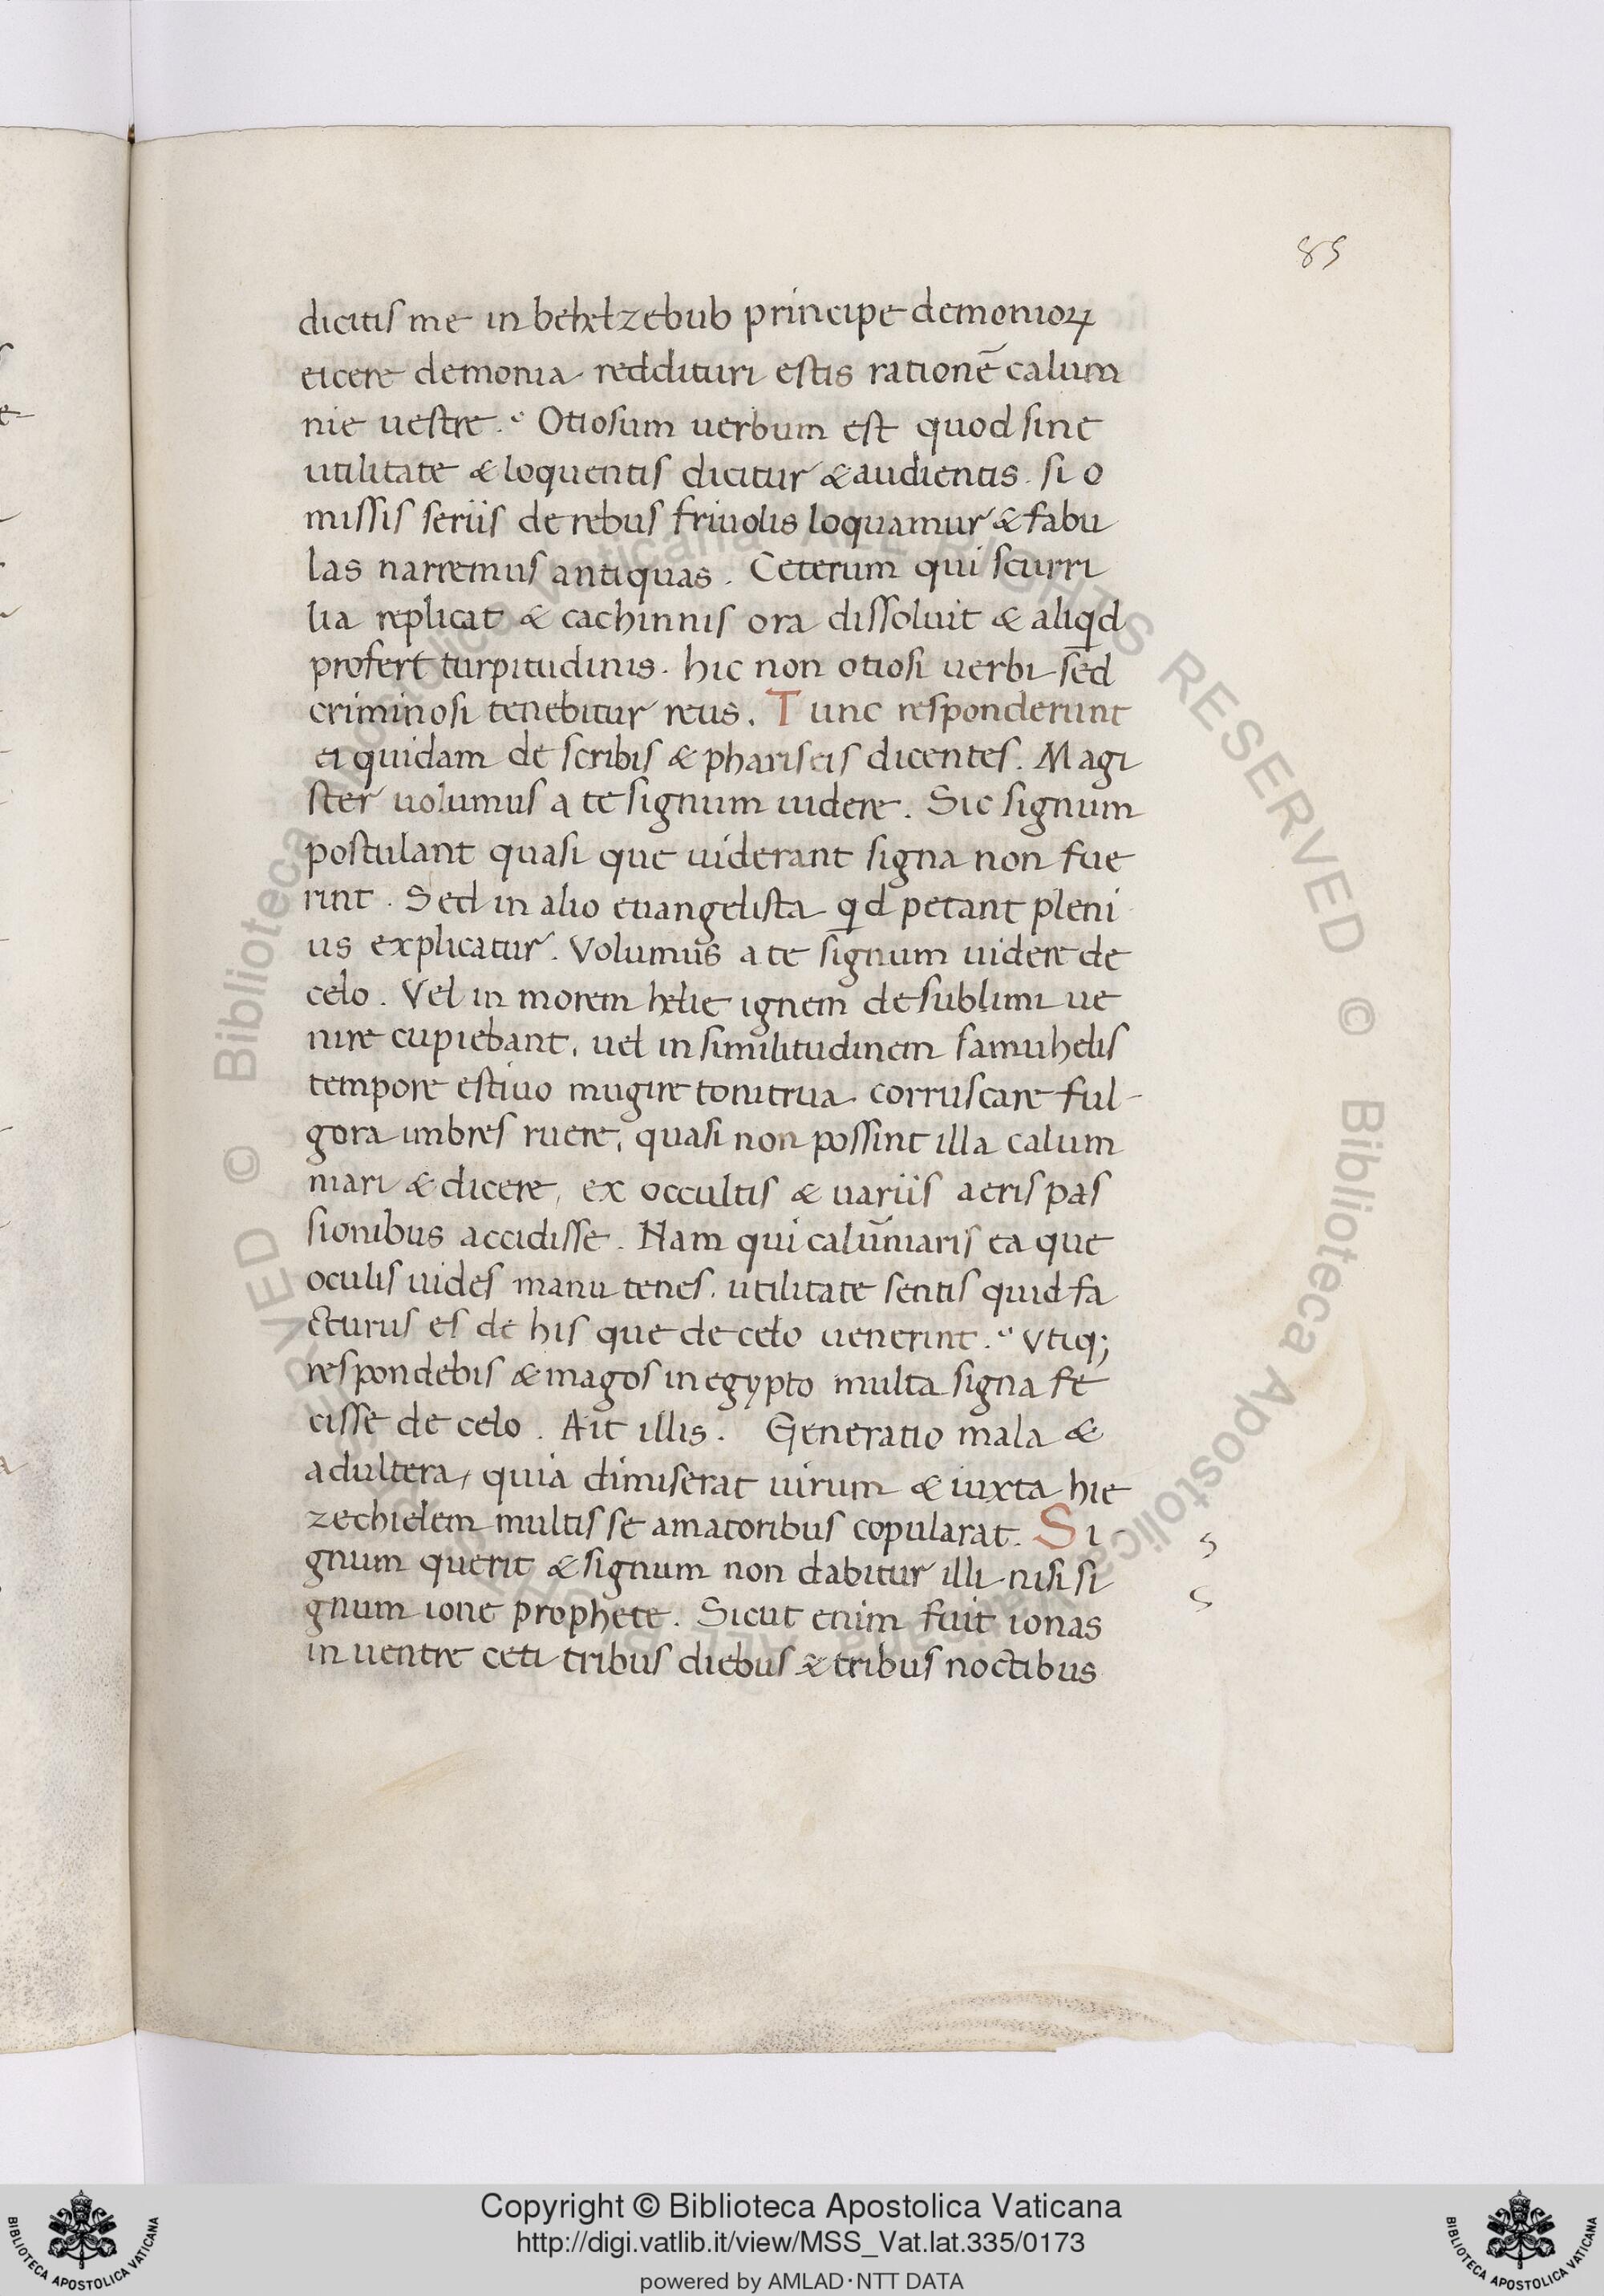 85
dicitis me in behelzebub principe demonioꝝ
eicere demonia reddituri estis rationē calum
nie uestre. Otiosum uerbum est quod sine
utilitate & loquentis dicitur & audientis. si o
missis seriis de rebus friuolis loquamur & fabu
las narremus antiquas. Ceterum qui scurri
lia replicat & cachinnis ora dissoluit & aliqd
profert turpitudinis. hic non otiosi uerbi sed
criminosi tenebitur reus. Tunc responderunt
ei quidam de scribis & phariseis dicentes. Magi
ster uolumus a te signum uidere. Sic signum
postulant quasi que uiderant signa non fue
rint. Sed in alio euangelista qd petant pleni
us explicatur. Volumus a te signum uidere de
celo. Vel in morem helie ignem de sublimi ue
nire cupiebant, uel in similitudinem samuhelis
tempore estiuo mugire tonitrua corruscare ful-
gora imbres ruere, quasi non possint illa calum
niari & dicere, ex occultis & uariis aeris pas
sionibus accidisse. Nam qui calūniaris ea que
oculis uides manu tenes. utilitate sentis quid fa
cturus es de his que de celo uenerint. Vtiq;
respondebis & magos in egypto multa signa fe
cisse de celo. Ait illis. Generatio mala &
adultera, quia dimiserat uirum & iuxta hie
zechielem multis se amatoribus copularat. Si
gnum querit & signum non dabitur illi nisi si
gnum ione prophete. Sicut enim fuit ionas
in uentre ceti tribus diebus & tribus noctibus
Copyright © Biblioteca Apostolica Vaticana
http://digi.vatlib.it/view/MSS_Vat.lat.335/0173
powered by AMLAD·NTT DATA